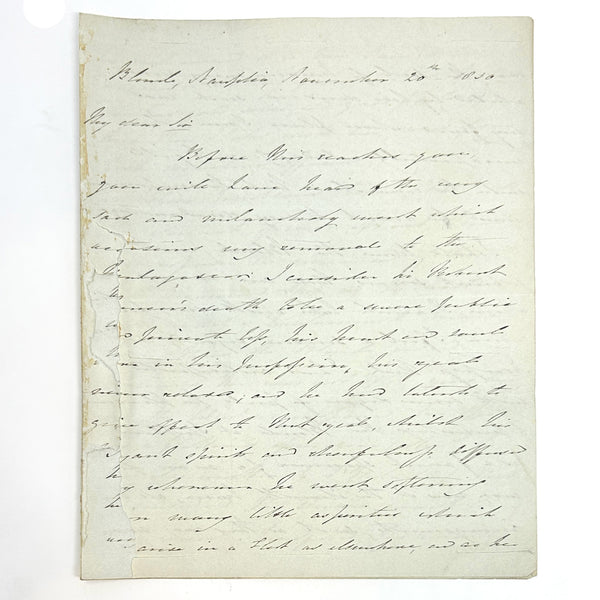 Blonde, Nauplia, November 20th 1830
My dear Sir
Before this reaches you,
you will have heard of the very
sad and melancholy event which
occasions my removal to the
I consider Sir Robert
death to be a severe public
and private loss, his heart and soul
in his profession, his zeal
never relaxed, and he had talents to
give effect to that zeal, whilst his
spirits and cheerfulness diffused
whenever he went softening
many little asperities which
arise in a Fleet as elsewhere, and as he